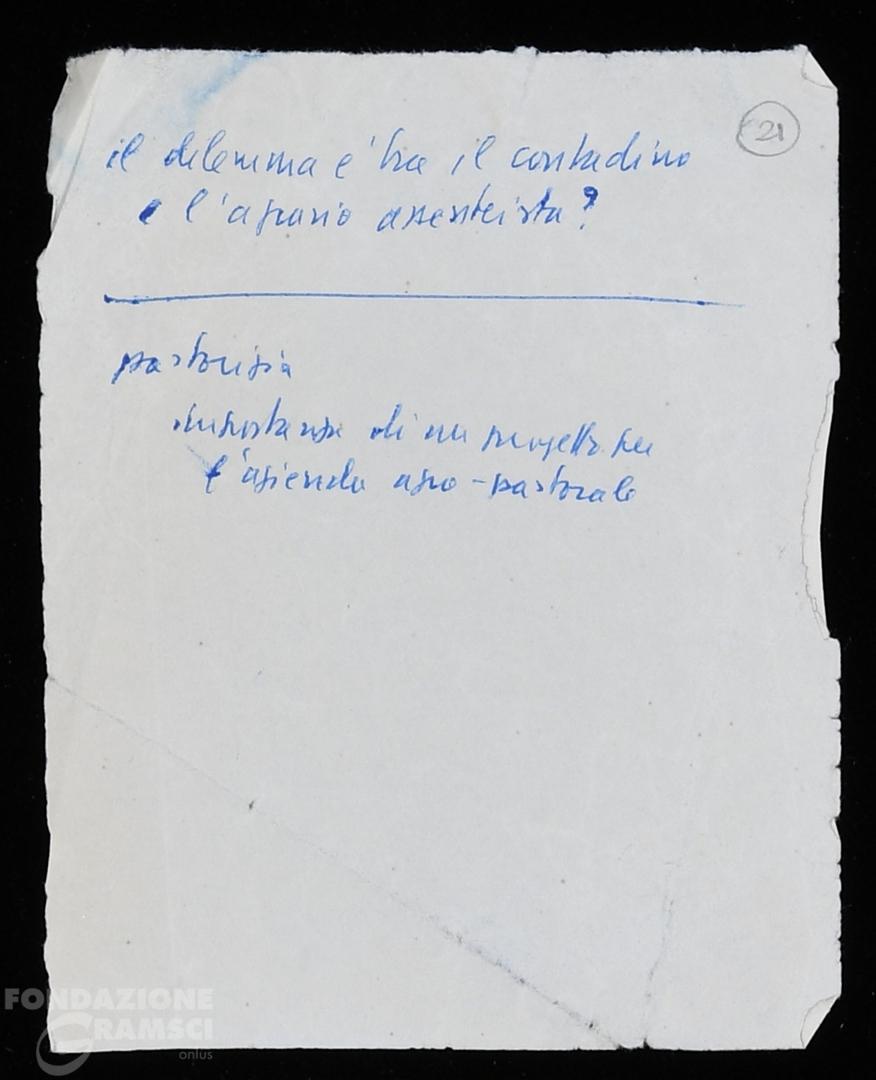 21
il dilemma e' tra il contadino
e l'agrario assenteista?
pastorizia
importanza di un progetto per
l'azienda agro-pastorale
FONDAZIONE
GRAMSCI
onlus